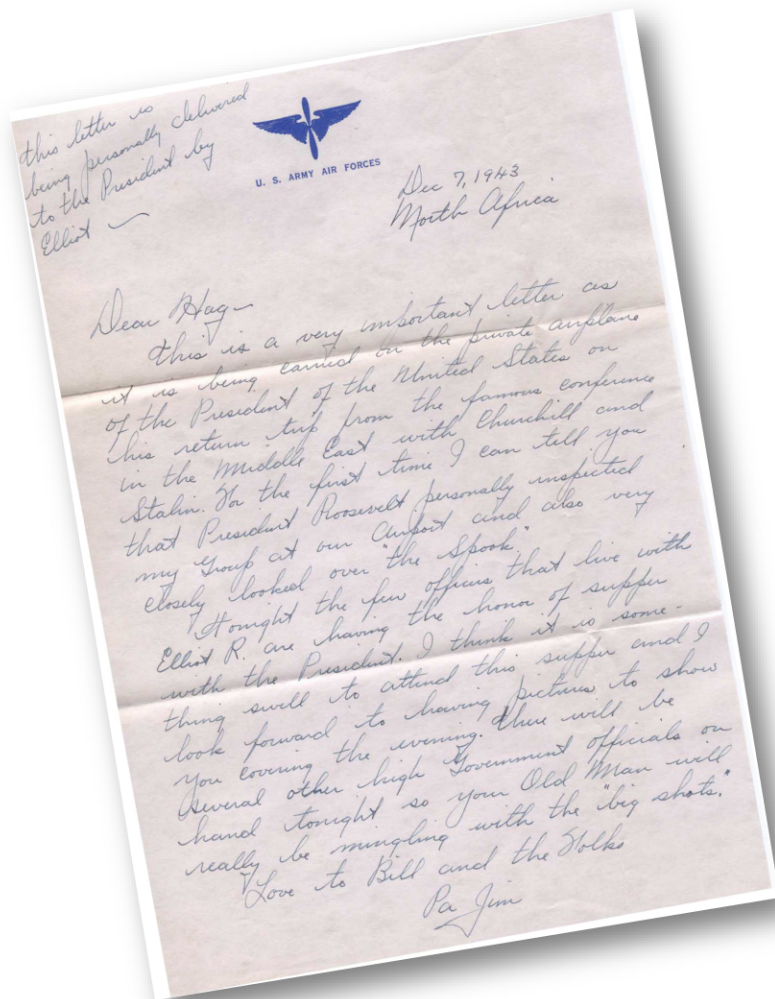 this letter is
being personally delivered
to the President by
Elliot
U. S. ARMY AIR FORCES
Dec 7, 1943
North Africa
Dear Hag -
This is a very important letter as
it is being carried on the private airplane
of the President of the United States on
his return trip from the famous conference
in the Middle East with Churchill and
Stalin. For the first time I can tell you
that President Roosevelt personally inspected
my Group at our Airport and also very
closely looked over "the Spook."
Tonight the few officers that live with
Elliot R. are having the honor of supper
with the President. I think it is some-
thing swell to attend this supper and I
look forward to having pictures to show
you covering the evening. There will be
several other high Government officials on
hand tonight so your Old Man will
really be mingling with the "big shots."
Love to Bill and the Folks
Pa Jim